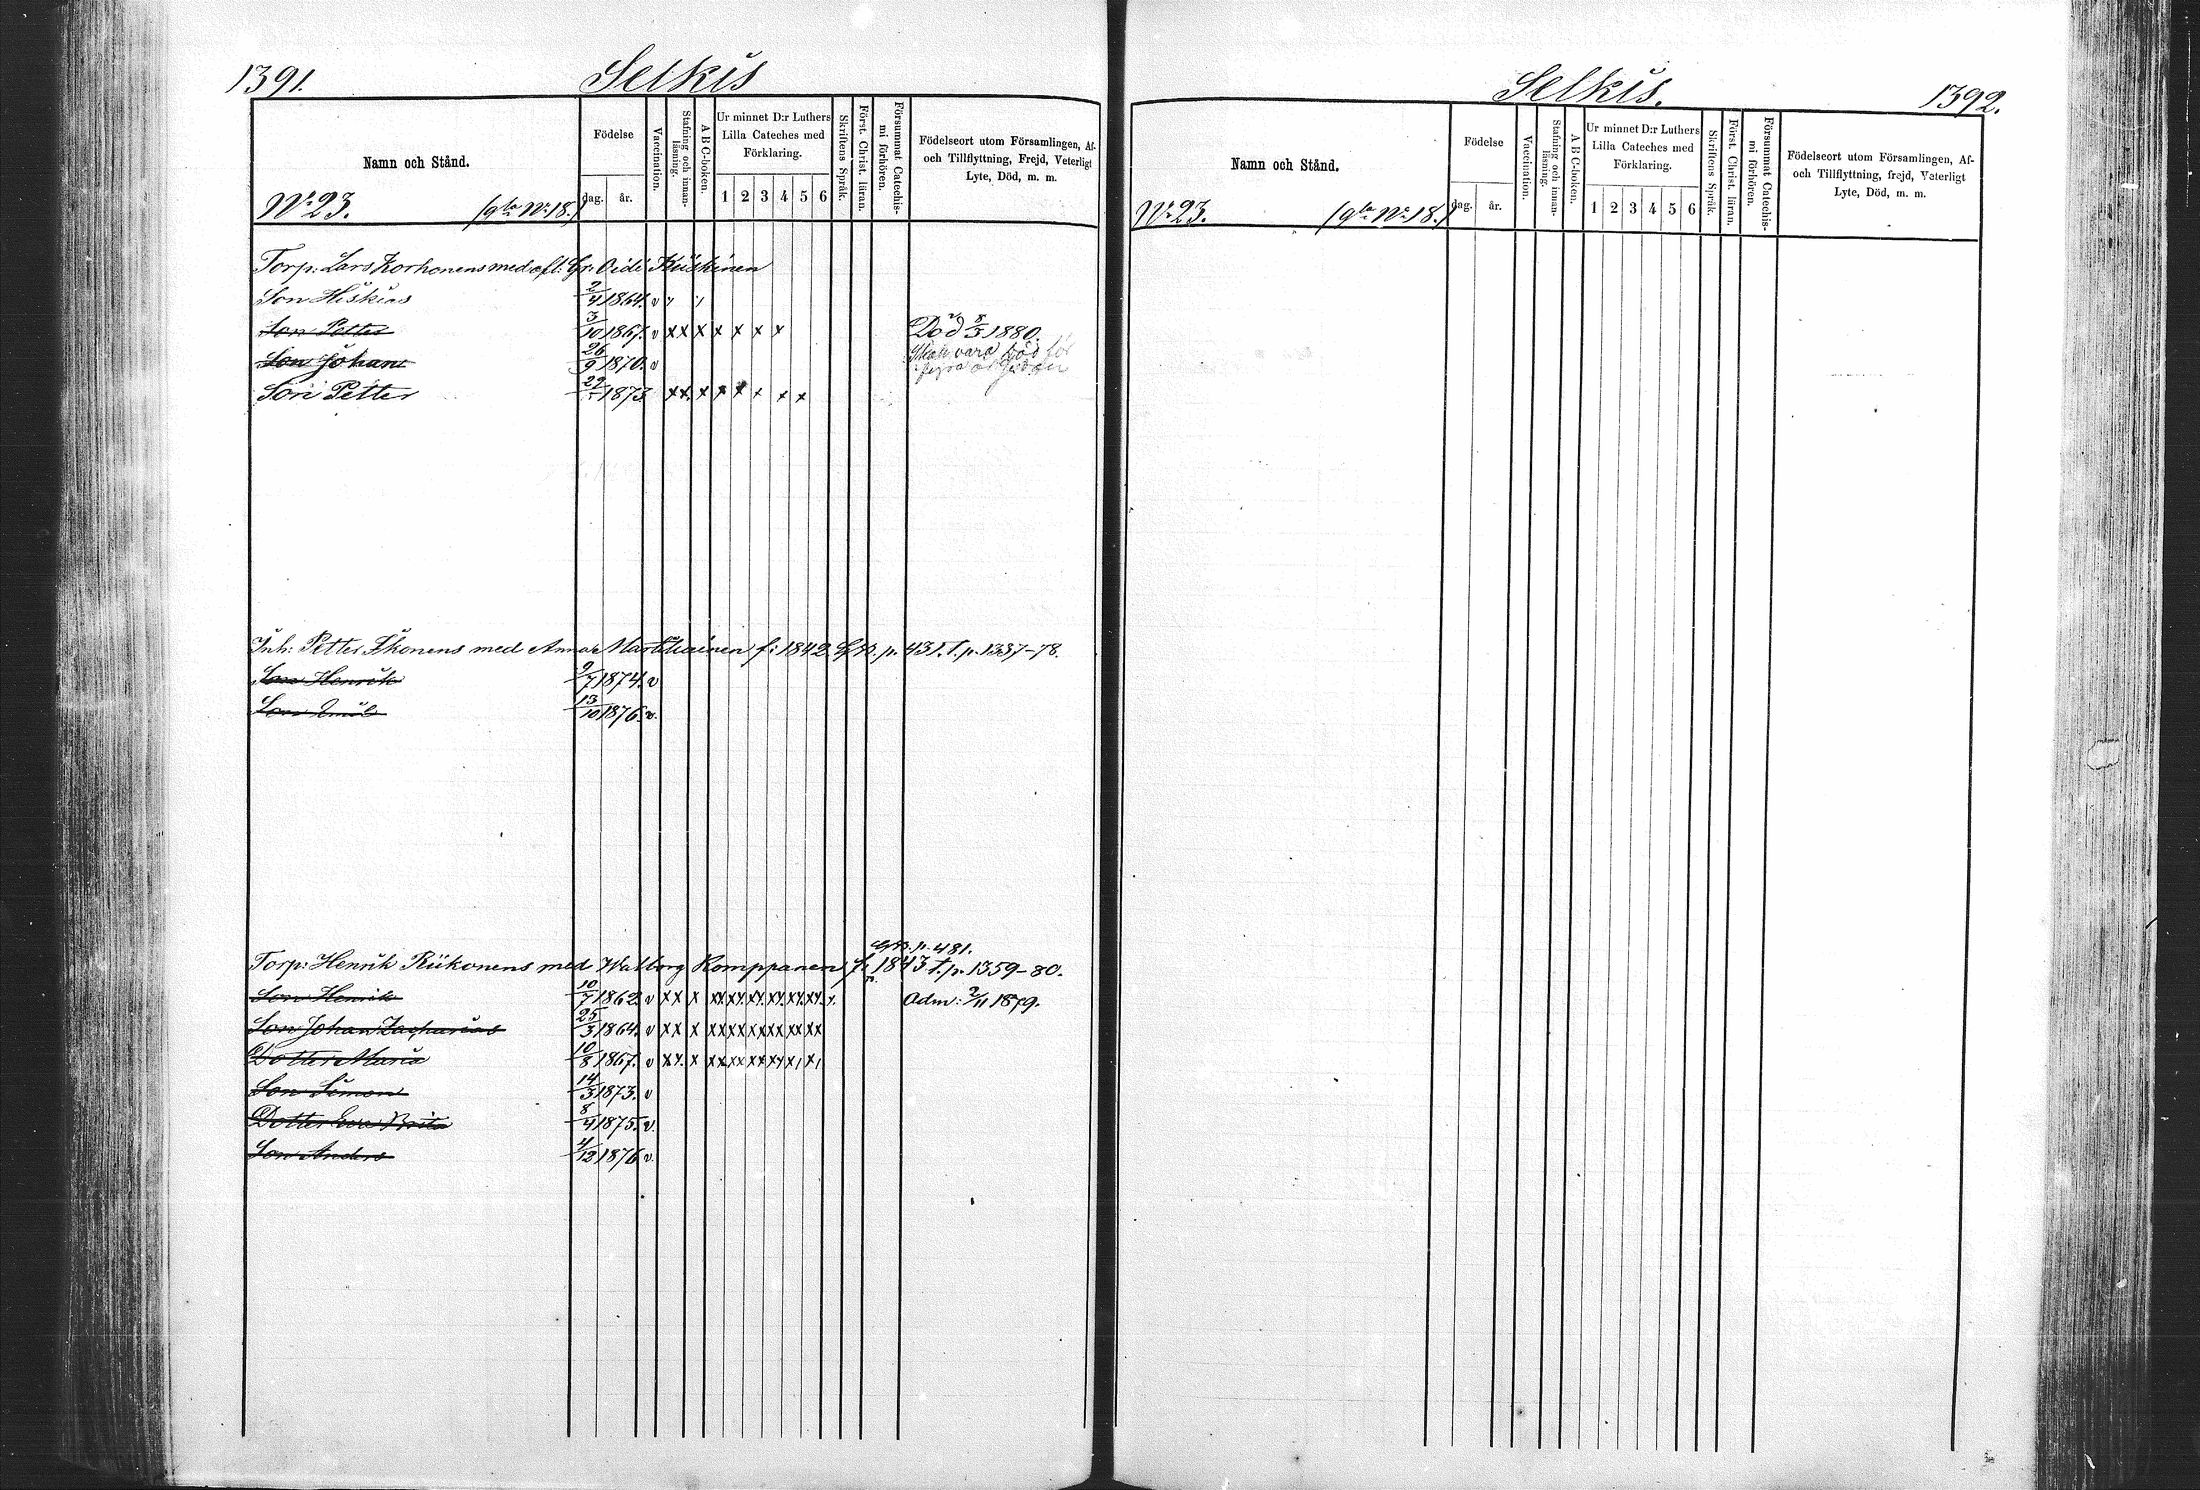 1391. Selkis
Namn och Stånd.
Födelse
dag. år.
Vaccination.
Stafning och innanläsning.
A B C-boken.
Ur minnet D:r Luthers Lilla Cateches med Förklaring.
1 2 3 4 5 6
Skriftens Språk.
Först. Christ. läran.
Försummat Catechismi förhören.
Födelseort utom Församlingen, Af- och Tillflyttning, Frejd, Veterligt Lyte, Död, m. m.
No 23. (gla No 18.)
Torp: Lars Korhonens med afl: Gr: Kiiskinen
Son Hiskias 2/4 1864. v
Son Petter 3/10 1867. v x x x x x x x Död 8/3 1880.
Son Johan 26/9 1870. v Skall vara död för
Son Petter 22 1873. x x x x x x x x
Inh: Petter Ikonens med Anna Martikainen f: 1842 GB. p. 431. t. p. 1337-78.
Son Henrik 9/7 1874. v
Son Emil 13/10 1876. v.
GB. p. 481.
Torp: Henrik Riikonens med Walborg Komppanen f: 1843 t. p. 1359-80.
Son Henrik 10/7 1862. v x x x xx xx xx xx xx xx x. Adm: 2/11 1879.
Son Johan Zacharias 25/3 1864. v x x x xx xx xx xx xx xx
Dotter Maria 10/8 1867. v x x. x xx xx xx xx x1 x1
Son Simon 14/3 1873. v
Dotter Eva Brita 8/4 1875. v.
Son Anders 4/12 1876 v.
Selkis. 1392.
Namn och Stånd.
Födelse
dag. år.
Vaccination.
Stafning och innanläsning.
A B C-boken.
Ur minnet D:r Luthers Lilla Cateches med Förklaring.
1 2 3 4 5 6
Skriftens Språk.
Först. Christ. läran.
Försummat Catechismi förhören.
Födelseort utom Församlingen, Af- och Tillflyttning, frejd, Veterligt Lyte, Död, m. m.
No 23. (gla No 18.)